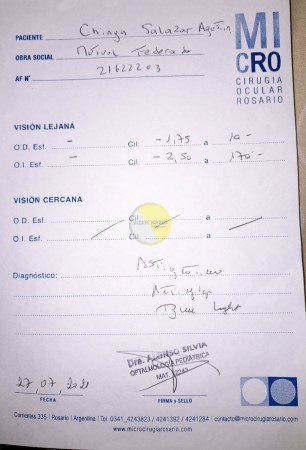 PACIENTE Chinga Salazar Agustin
OBRA SOCIAL Mutual Federada
AF Nº 21622203
MI
CRO
CIRUGIA
OCULAR
ROSARIO
VISIÓN LEJANA
O.D. Esf. - Cil. -1,75 a 10º
O.I. Esf. - Cil. -2,50 a 170º
VISIÓN CERCANA
O.D. Esf. Cil. a
O.I. Esf. Cil. a
Diagnóstico:
Blue Light
Dra. ALONSO SILVIA
OFTALMOLOGÍA PEDIÁTRICA
MAT.
27, 07, 2021
FECHA
FIRMA y SELLO
Corrientes 335 | Rosario | Argentina | Tel. 0341_4243823 / 4241392 / 4241284 | contacto@microcirugiarosario.com
www.microcirugiarosario.com